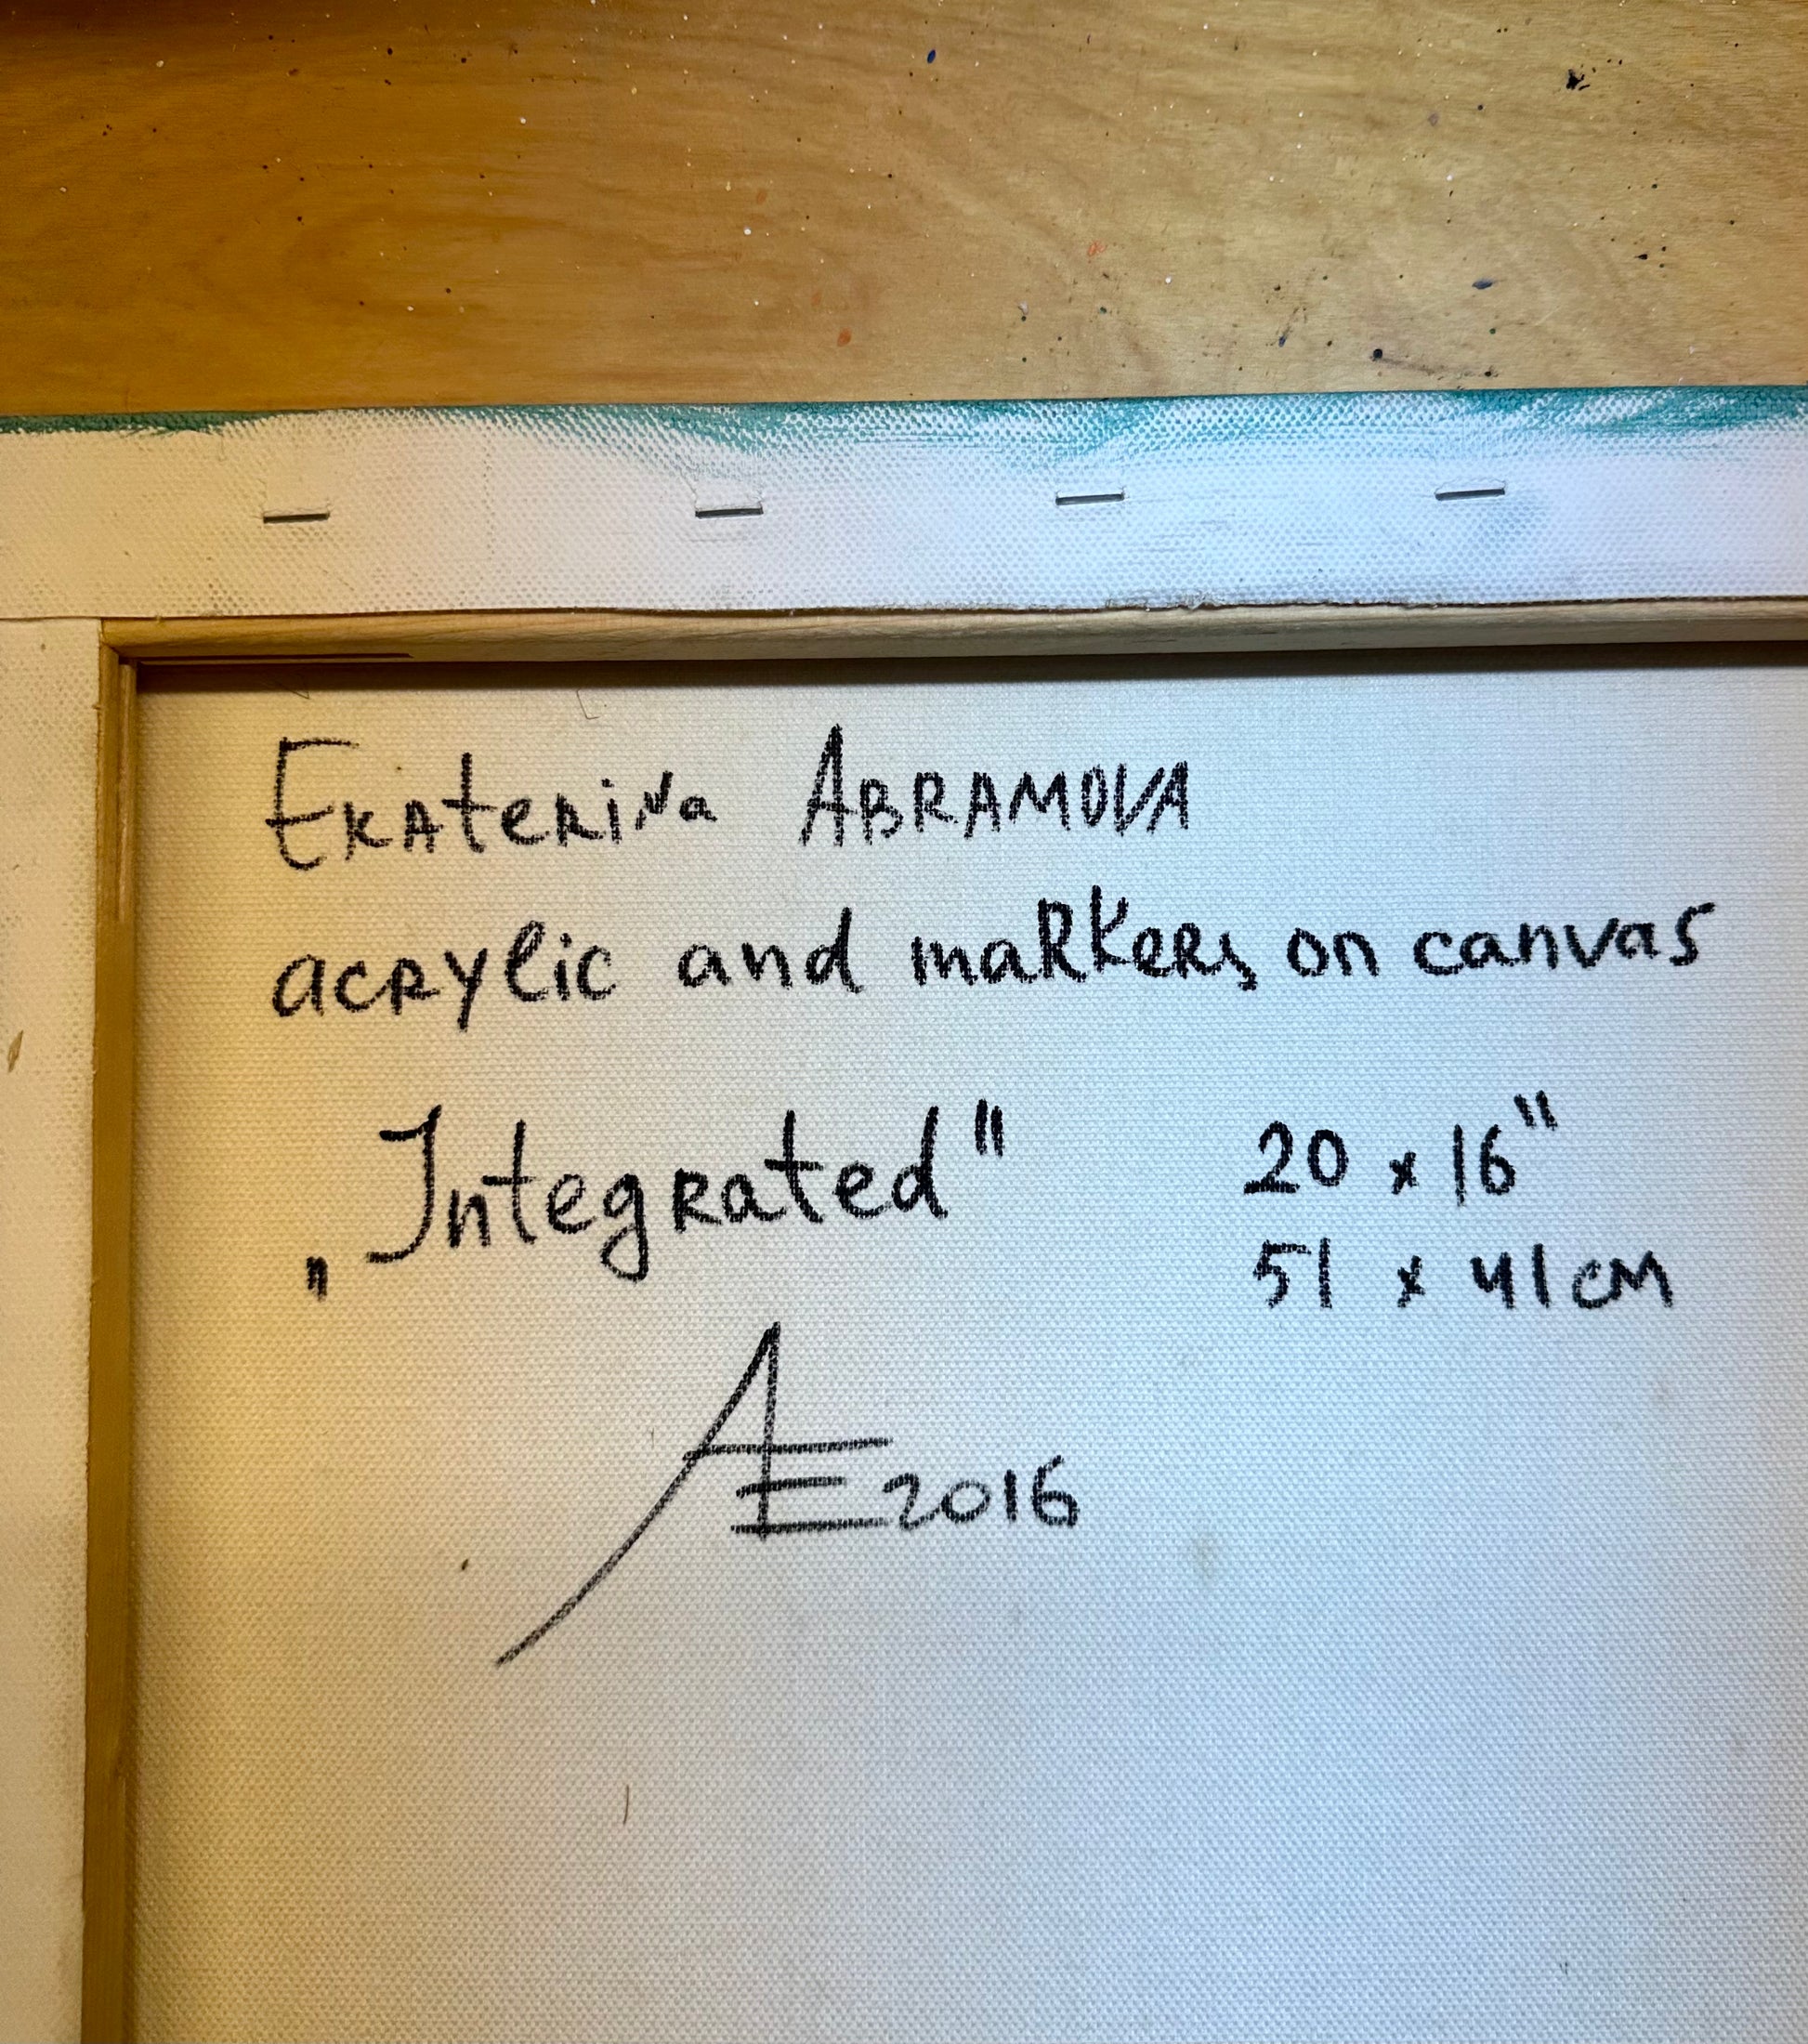 Ekaterina ABRAMOVA
acrylic and markers on canvas
„Integrated" 20 x 16"
51 x 41 cm
AE 2016